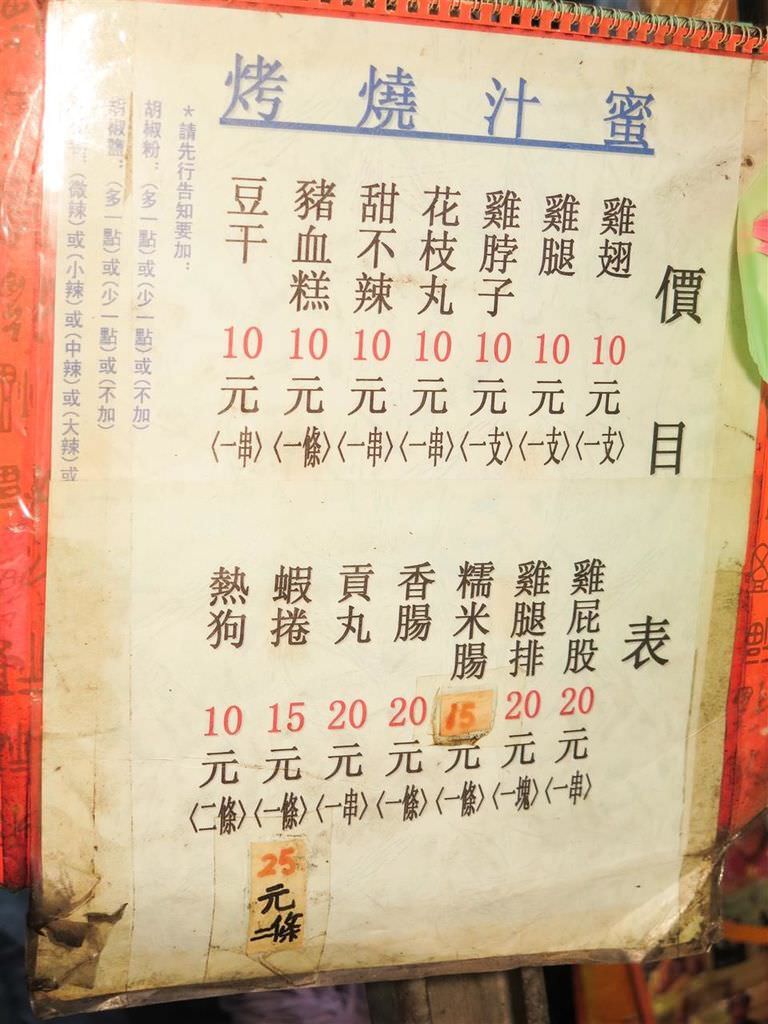 蜜汁燒烤
價目表
雞翅10元〈一支〉
雞腿10元〈一支〉
雞脖子10元〈一支〉
花枝丸10元〈一串〉
甜不辣10元〈一串〉
豬血糕10元〈一條〉
豆干10元〈一串〉
雞屁股20元〈一串〉
雞腿排20元〈一塊〉
糯米腸15元〈一條〉
香腸20元〈一條〉
貢丸20元〈一串〉
蝦捲15元〈一條〉
25元二條
熱狗10元〈二條〉
*請先行告知要加:
胡椒粉:(多一點)或(少一點)或(不加)
胡椒鹽:(多一點)或(少一點)或(不加)
(微辣)或(小辣)或(中辣)或(大辣)或